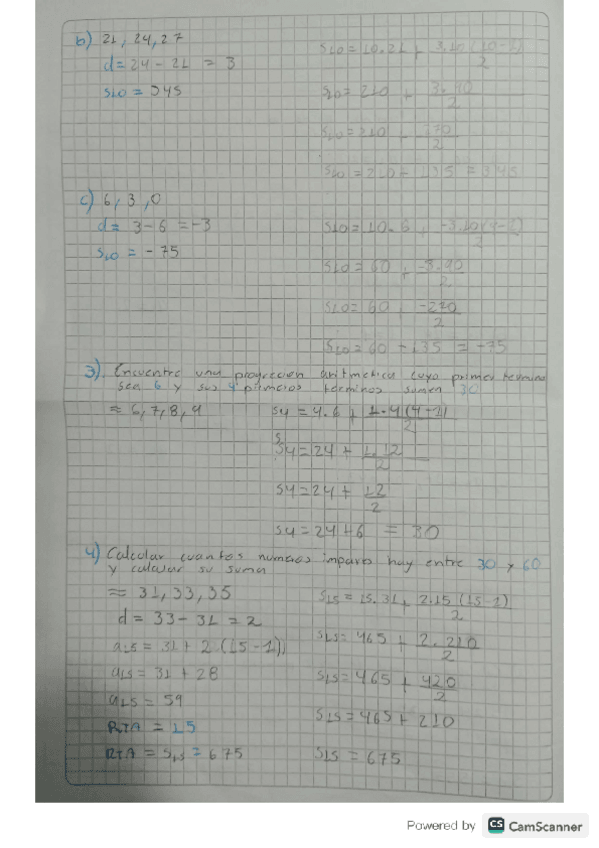 b) 21, 24, 27
d = 24 - 21 = 3
S10 = 345
S10 = 10.21 + 3.10 (10-1)
2
S10 = 210 + 3.90
2
S10 = 210 + 270
2
S10 = 210 + 135 = 345
c) 6, 3, 0
d = 3-6 = -3
S10 = -75
S10 = 60 + -3.90
2
S10 = 60 + -270
2
S10 = 60 - 135 = -75
3) Encuentre una progrecion aritmetica cuyo primer termino
sea 6 y sus 4 primeros terminos sumen 30
≈ 6, 7, 8, 9
S4 = 4.6 + 1.4 (4-1)
2
S4 = 24 + 1.12
2
S4 = 24 + 12
2
S4 = 24 + 6 = 30
4) Calcular cuantos numeros impares hay entre 30 y 60
y calcular su suma
≈ 31, 33, 35
d = 33 - 31 = 2
a15 = 31 + 2 (15-1)
a15 = 31 + 28
a15 = 59
RTA = 15
RTA = S15 = 675
S15 = 15.31 + 2.15 (15-1)
2
S15 = 465 + 2.210
2
S15 = 465 + 420
2
S15 = 465 + 210
S15 = 675
Powered by CS CamScanner